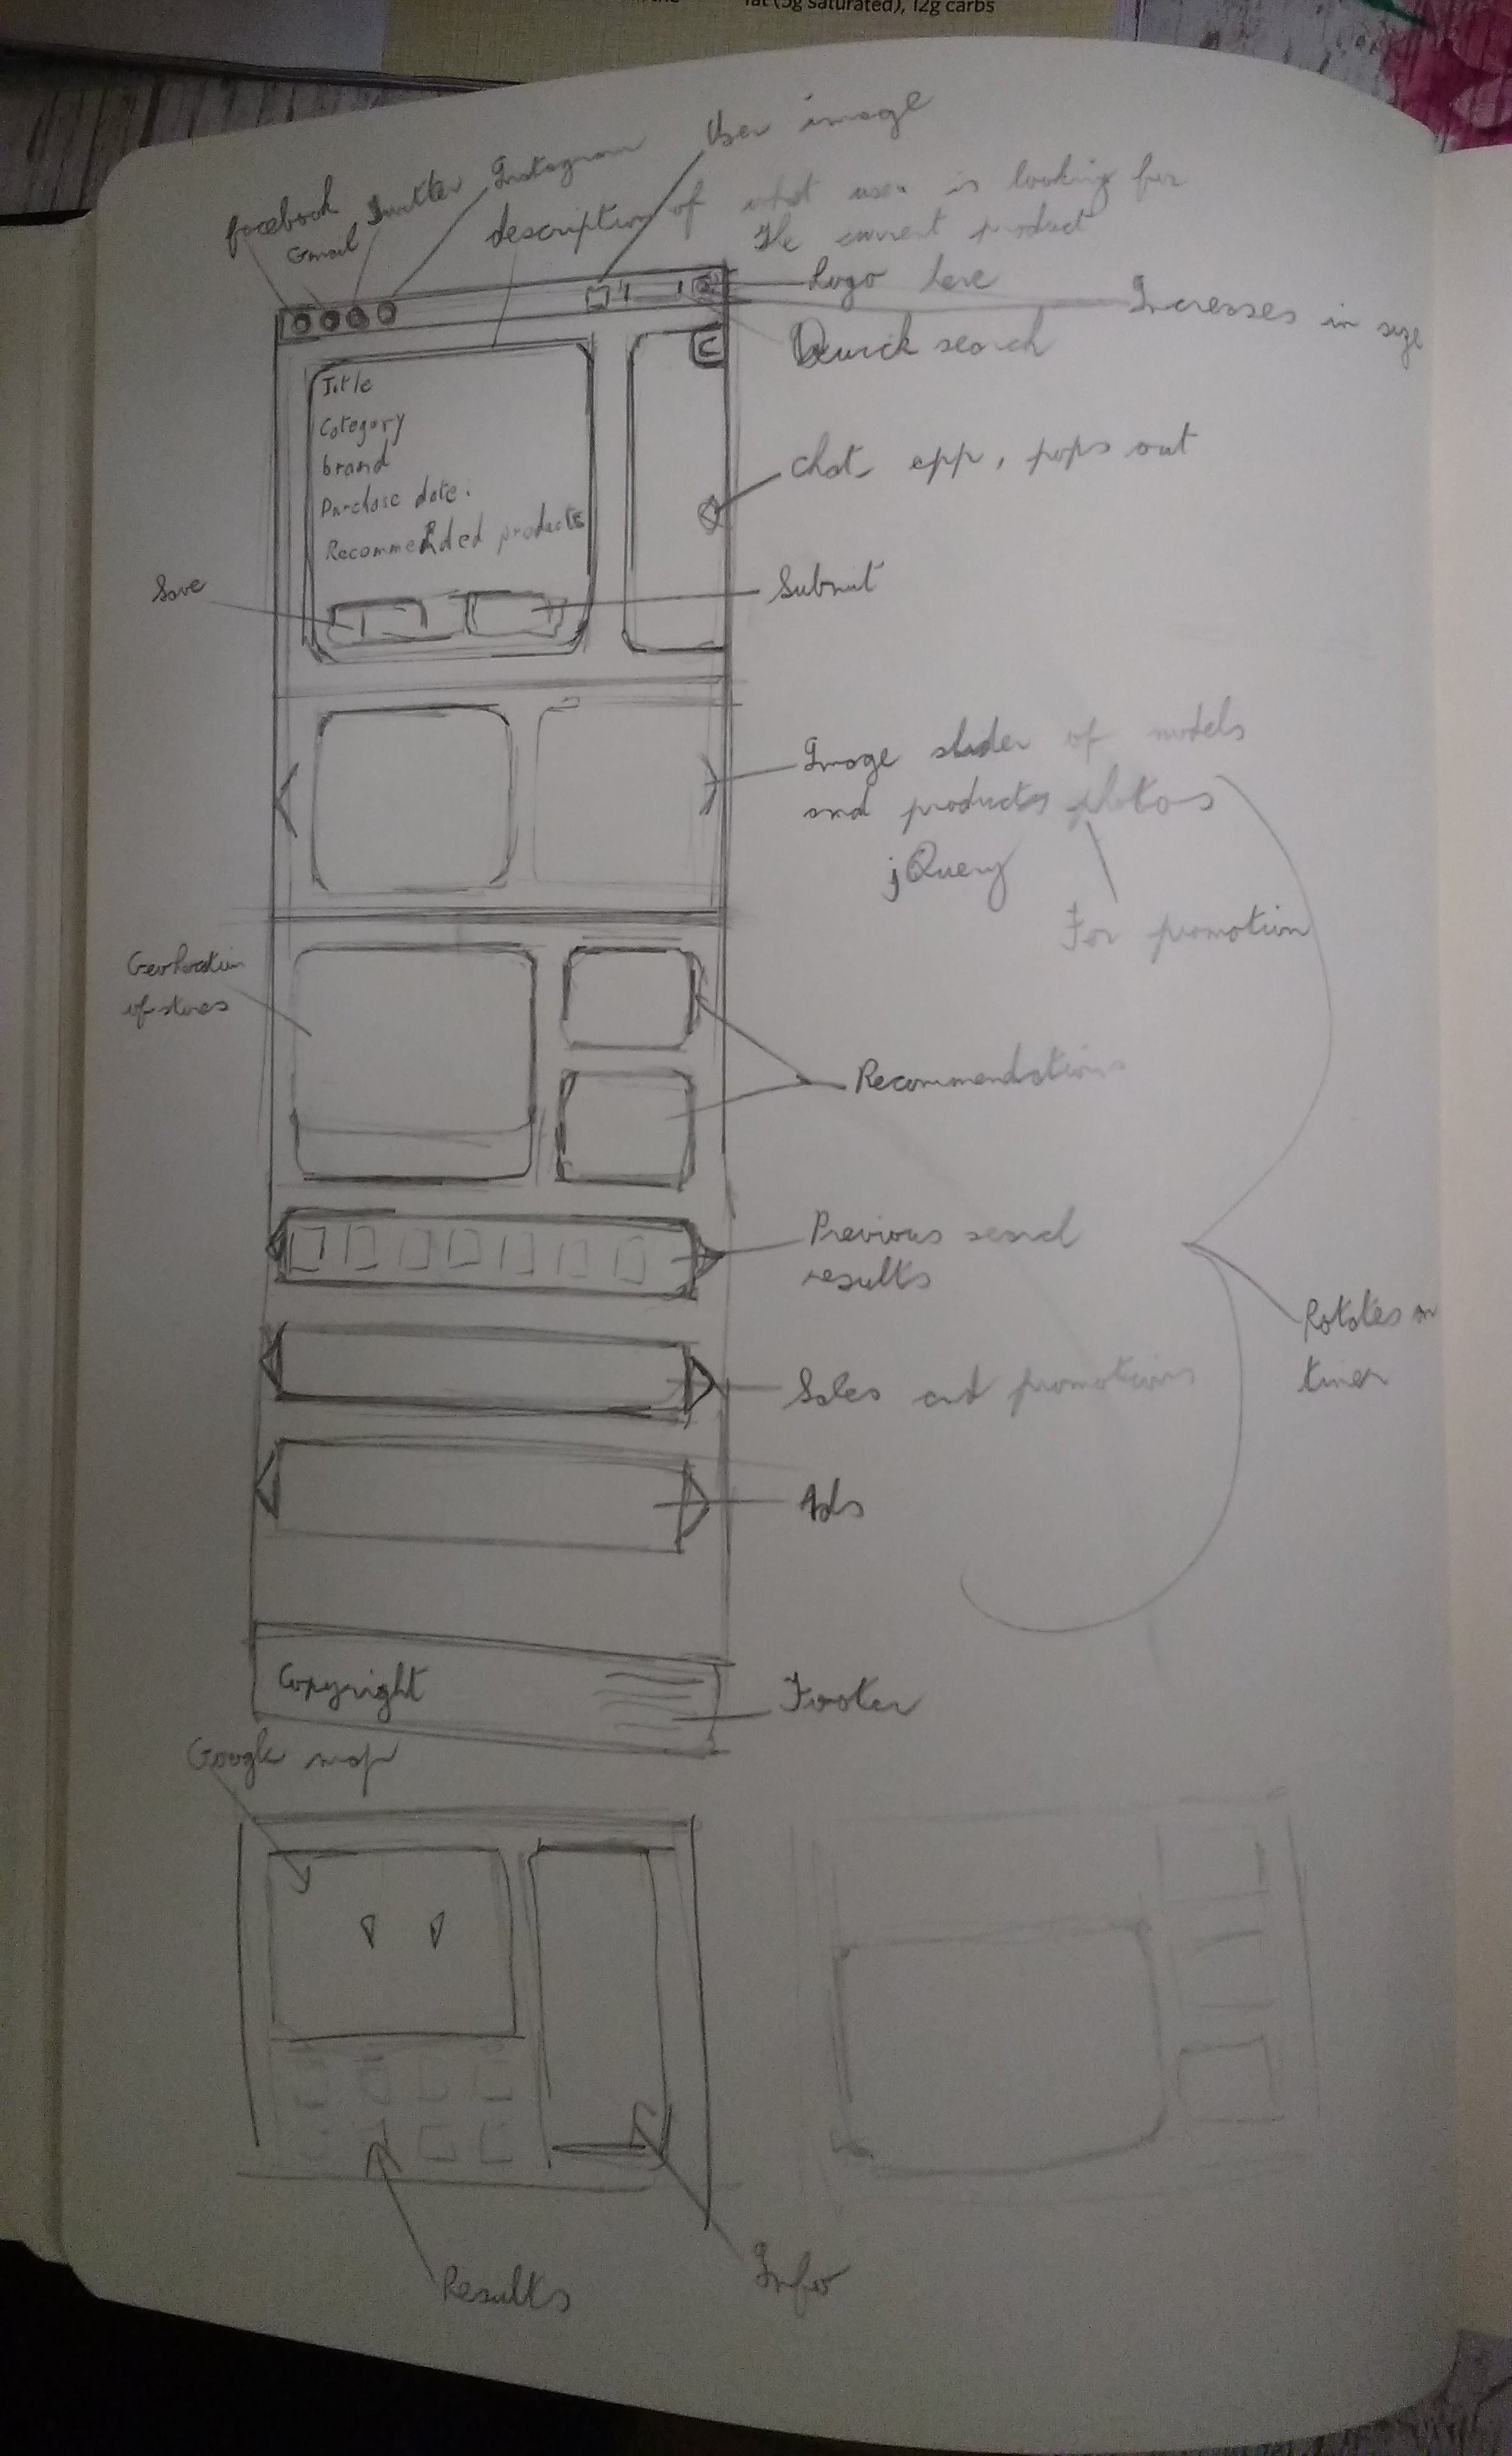 fat (5g saturated), 12g carbs
User image
facebook
Gmail
Twitter
Instagram
description of what user is looking for
The current product
Logo here
Increases in size
Quick search
Title
Category
brand
Purchase date:
Recommended products
Chat app, pops out
Save
Submit
Image slider of models
and products photos
jQuery
For promotion
Geolocation
of stores
Recommendations
Previous search
results
Rotates on
timer
Sales and promotions
Ads
Copyright
Footer
Google map
Results
Info